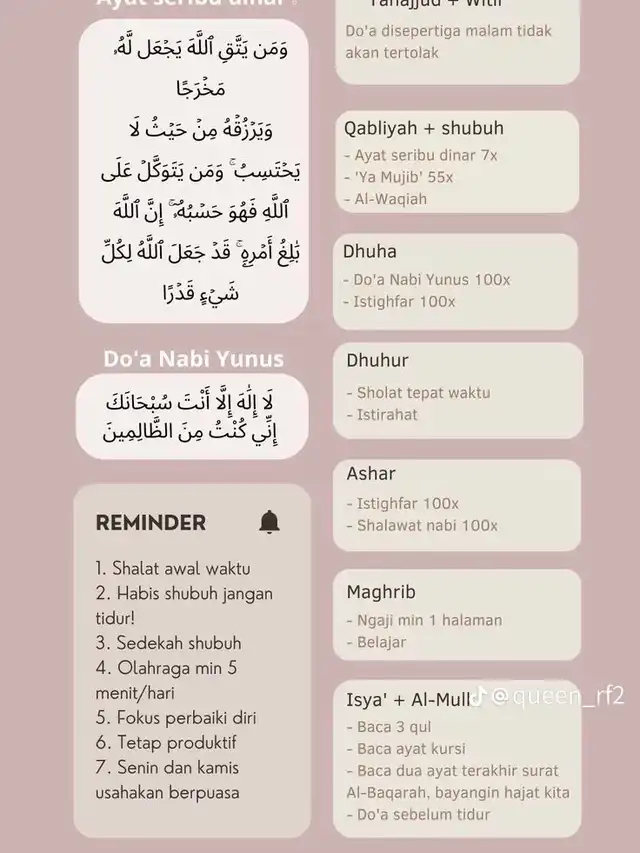 Ayat seribu dinar
وَمَن يَتَّقِ ٱللَّهَ يَجْعَل لَّهُۥ
مَخْرَجًا
وَيَرْزُقْهُ مِنْ حَيْثُ لَا
يَحْتَسِبُ ۚ وَمَن يَتَوَكَّلْ عَلَى
ٱللَّهِ فَهُوَ حَسْبُهُۥٓ ۚ إِنَّ ٱللَّهَ
بَٰلِغُ أَمْرِهِۦ ۚ قَدْ جَعَلَ ٱللَّهُ لِكُلِّ
شَىْءٍ قَدْرًا
Do'a Nabi Yunus
لَا إِلَٰهَ إِلَّا أَنْتَ سُبْحَانَكَ
إِنِّي كُنْتُ مِنَ الظَّالِمِينَ
REMINDER
1. Shalat awal waktu
2. Habis shubuh jangan
tidur!
3. Sedekah shubuh
4. Olahraga min 5
menit/hari
5. Fokus perbaiki diri
6. Tetap produktif
7. Senin dan kamis
usahakan berpuasa
Tahajjud + Witir
Do'a disepertiga malam tidak
akan tertolak
Qabliyah + shubuh
- Ayat seribu dinar 7x
- 'Ya Mujib' 55x
- Al-Waqiah
Dhuha
- Do'a Nabi Yunus 100x
- Istighfar 100x
Dhuhur
- Sholat tepat waktu
- Istirahat
Ashar
- Istighfar 100x
- Shalawat nabi 100x
Maghrib
- Ngaji min 1 halaman
- Belajar
Isya' + Al-Mulk
@queen_rf2
- Baca 3 qul
- Baca ayat kursi
- Baca dua ayat terakhir surat
Al-Baqarah, bayangin hajat kita
- Do'a sebelum tidur